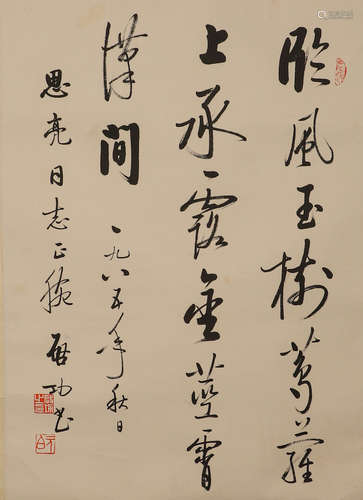 臨風玉樹蔦蘿
上承露金莖霄
漢間 一九八五年秋日
思亮同志正腕 啟功書